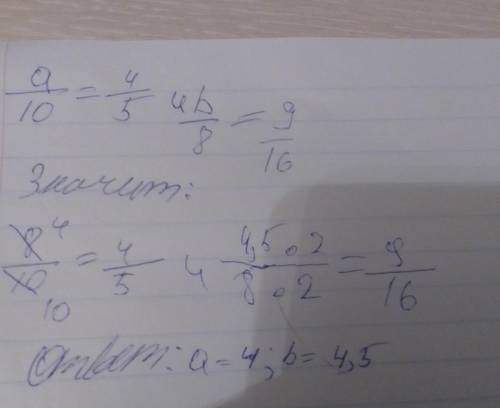 a/10 = 4/5 и b/8 = 9/16
Значит:
8 4/10 10 = 4/5 и 4,5 . 2/8 . 2 = 9/16
Ответ: a = 4; b = 4,5